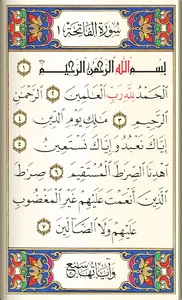 سورة الفاتحة ١
بسم الله الرحمن الرحيم ١
الحمد لله رب العالمين ٢ الرحمن
الرحيم ٣ ملك يوم الدين ٤
إياك نعبد وإياك نستعين ٥
اهدنا الصرط المستقيم ٦ صرط
الذين أنعمت عليهم غير المغضوب
عليهم ولا الضالين ٧
وآياتها سبع